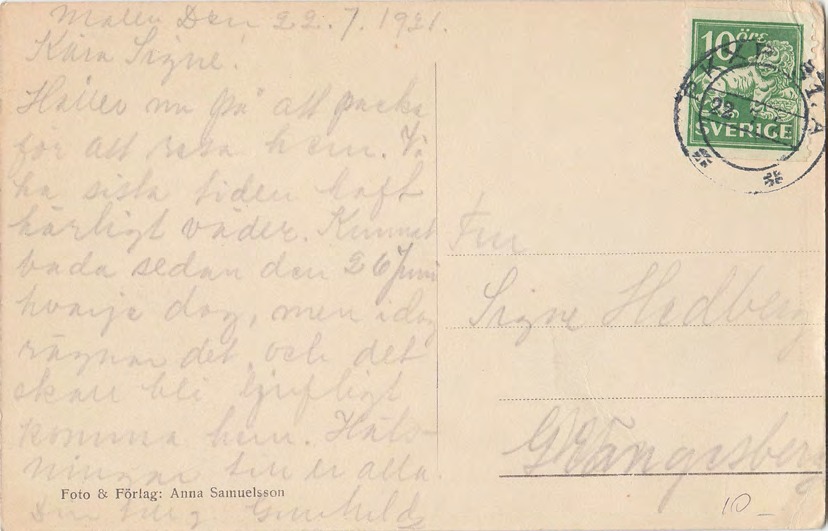 Malen Den 22.7.1921.
Kära Signe!
Håller nu på att packa
för att resa hem. Vi
ha sista tiden haft
härligt väder. Kunnat
bada sedan den 26 Juni
hvarje dag, men idag
rägnar det, och det
skall bli ljufligt
komma hem. Häls-
ningar till er alla.
Gunhild
Foto & Förlag: Anna Samuelsson
10 ÖRE
SVERIGE
22
Fru
Signe Hedberg
10-